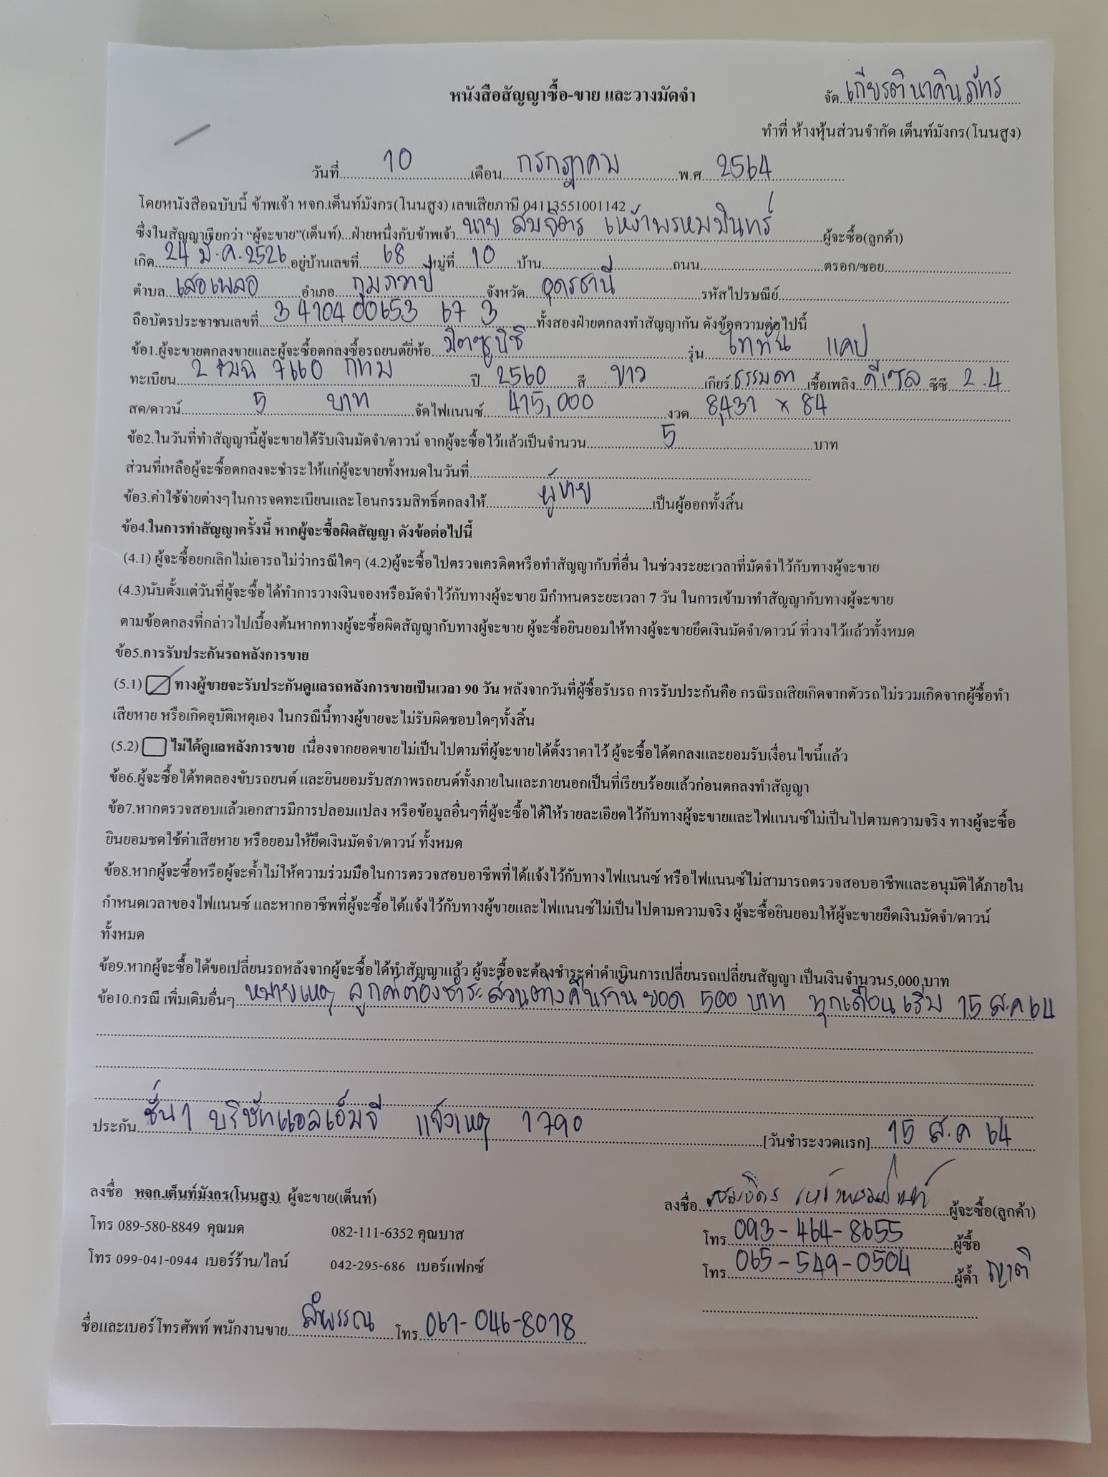 หนังสือสัญญาซื้อ-ขาย และวางมัดจำ
จัด เกียรตินาคินภัทร
ทำที่ ห้างหุ้นส่วนจำกัด เต็นท์มังกร(โนนสูง)
วันที่ 10 เดือน กรกฎาคม พ.ศ 2564
โดยหนังสือฉบับนี้ ข้าพเจ้า หจก.เต็นท์มังกร(โนนสูง) เลขเสียภาษี 04113551001142
ซึ่งในสัญญาเรียกว่า “ผู้จะขาย”(เต็นท์)...ฝ่ายหนึ่งกับข้าพเจ้า นาย สมจิตร เหง้าพรหมมินทร์ ผู้จะซื้อ(ลูกค้า)
เกิด 24 มี.ค.2526 อยู่บ้านเลขที่ 68 หมู่ที่ 10 บ้าน ถนน ตรอก/ซอย
ตำบล เสอเพลอ อำเภอ กุมภวาปี จังหวัด อุดรธานี รหัสไปรษณีย์
ถือบัตรประชาชนเลขที่ 3 4104 00653 67 3 ทั้งสองฝ่ายตกลงทำสัญญากัน ดังข้อความต่อไปนี้
ข้อ1.ผู้จะขายตกลงขายและผู้จะซื้อตกลงซื้อรถยนต์ยี่ห้อ มิตซูบิชิ รุ่น ไททัน แคป
ทะเบียน 2 ฒฉ 7660 กทม ปี 2560 สี ขาว เกียร์ ธรรมดา เชื้อเพลิง ดีเซล ซีซี 2.4
สด/ดาวน์ 5 บาท จัดไฟแนนซ์ 415,000 งวด 8,431 x 84
ข้อ2.ในวันที่ทำสัญญานี้ผู้จะขายได้รับเงินมัดจำ/ดาวน์ จากผู้จะซื้อไว้แล้วเป็นจำนวน 5 บาท
ส่วนที่เหลือผู้จะซื้อตกลงจะชำระให้แก่ผู้จะขายทั้งหมดในวันที่
ข้อ3.ค่าใช้จ่ายต่างๆในการจดทะเบียนและโอนกรรมสิทธิ์ตกลงให้ ผู้ขาย เป็นผู้ออกทั้งสิ้น
ข้อ4.ในการทำสัญญาครั้งนี้ หากผู้จะซื้อผิดสัญญา ดังข้อต่อไปนี้
(4.1) ผู้จะซื้อยกเลิกไม่เอารถไม่ว่ากรณีใดๆ (4.2)ผู้จะซื้อไปตรวจเครดิตหรือทำสัญญากับที่อื่น ในช่วงระยะเวลาที่มัดจำไว้กับทางผู้จะขาย
(4.3)นับตั้งแต่วันที่ผู้จะซื้อได้ทำการวางเงินจองหรือมัดจำไว้กับทางผู้จะขาย มีกำหนดระยะเวลา 7 วัน ในการเข้ามาทำสัญญากับทางผู้จะขาย
ตามข้อตกลงที่กล่าวไปเบื้องต้นหากทางผู้จะซื้อผิดสัญญากับทางผู้จะขาย ผู้จะซื้อยินยอมให้ทางผู้จะขายยึดเงินมัดจำ/ดาวน์ ที่วางไว้แล้วทั้งหมด
ข้อ5.การรับประกันรถหลังการขาย
(5.1) ทางผู้ขายจะรับประกันดูแลรถหลังการขายเป็นเวลา 90 วัน หลังจากวันที่ผู้ซื้อรับรถ การรับประกันคือ กรณีรถเสียเกิดจากตัวรถไม่รวมเกิดจากผู้ซื้อทำ
เสียหาย หรือเกิดอุบัติเหตุเอง ในกรณีนี้ทางผู้ขายจะไม่รับผิดชอบใดๆทั้งสิ้น
(5.2) ไม่ได้ดูแลหลังการขาย เนื่องจากยอดขายไม่เป็นไปตามที่ผู้จะขายได้ตั้งราคาไว้ ผู้จะซื้อได้ตกลงและยอมรับเงื่อนไขนี้แล้ว
ข้อ6.ผู้จะซื้อได้ทดลองขับรถยนต์ และยินยอมรับสภาพรถยนต์ทั้งภายในและภายนอกเป็นที่เรียบร้อยแล้วก่อนตกลงทำสัญญา
ข้อ7.หากตรวจสอบแล้วเอกสารมีการปลอมแปลง หรือข้อมูลอื่นๆที่ผู้จะซื้อได้ให้รายละเอียดไว้กับทางผู้จะขายและไฟแนนซ์ไม่เป็นไปตามความจริง ทางผู้จะซื้อ
ยินยอมชดใช้ค่าเสียหาย หรือยอมให้ยึดเงินมัดจำ/ดาวน์ ทั้งหมด
ข้อ8.หากผู้จะซื้อหรือผู้จะค้ำไม่ให้ความร่วมมือในการตรวจสอบอาชีพที่ได้แจ้งไว้กับทางไฟแนนซ์ หรือไฟแนนซ์ไม่สามารถตรวจสอบอาชีพและอนุมัติได้ภายใน
กำหนดเวลาของไฟแนนซ์ และหากอาชีพที่ผู้จะซื้อได้แจ้งไว้กับทางผู้ขายและไฟแนนซ์ไม่เป็นไปตามความจริง ผู้จะซื้อยินยอมให้ผู้จะขายยึดเงินมัดจำ/ดาวน์
ทั้งหมด
ข้อ9.หากผู้จะซื้อได้ขอเปลี่ยนรถหลังจากผู้จะซื้อได้ทำสัญญาแล้ว ผู้จะซื้อจะต้องชำระค่าดำเนินการเปลี่ยนรถเปลี่ยนสัญญา เป็นเงินจำนวน5,000 บาท
ข้อ10.กรณี เพิ่มเติมอื่นๆ หมายเหตุ ลูกค้าต้องชำระส่วนต่างคืนร้านยอด 500 บาท ทุกเดือน เริ่ม 15 ส.ค 64
ประกัน ชั้น 1 บริษัทแอลเอ็มจี แจ้งเหตุ 1790 [วันชำระงวดแรก] 15 ส.ค 64
ลงชื่อ หจก.เต็นท์มังกร(โนนสูง) ผู้จะขาย(เต็นท์)
ลงชื่อ สมจิตร เหง้าพรหมมินทร์ ผู้จะซื้อ(ลูกค้า)
โทร 089-580-8849 คุณมด 082-111-6352 คุณบาส
โทร 093-464-8655 ผู้ซื้อ
โทร 099-041-0944 เบอร์ร้าน/ไลน์ 042-295-686 เบอร์แฟกซ์
โทร 065-549-0504 ผู้ค้ำ ญาติ
ชื่อและเบอร์โทรศัพท์ พนักงานขาย ลำพรรณ โทร 061-046-8078